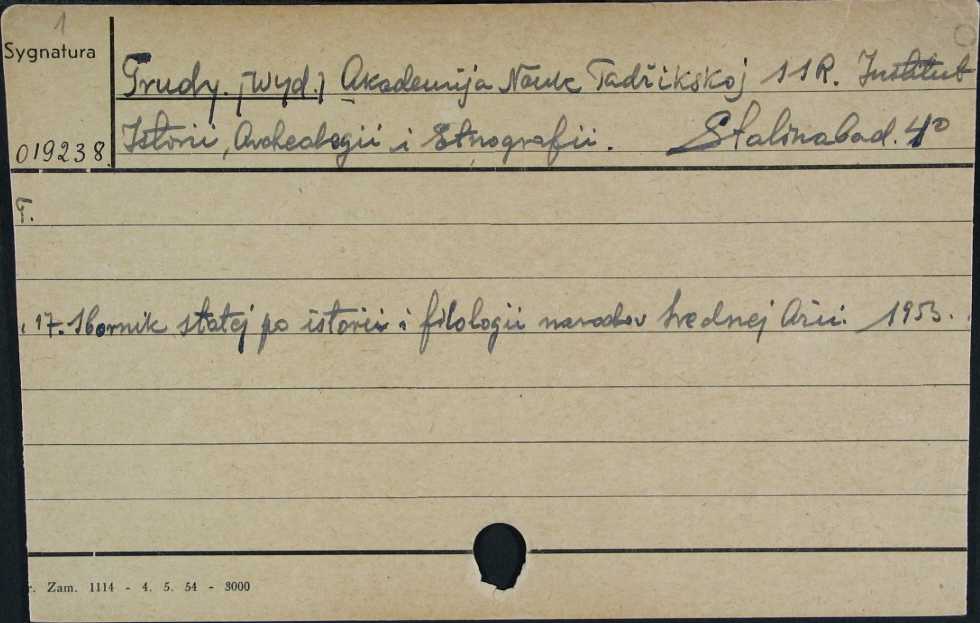 1
Sygnatura
Trudy. [Wyd.] Akademija Nauk Tadžikskoj SSR. Institut
019238 Istorii, Archeologii i Etnografii. Stalinabad. 4º
T.
17. Sbornik statej po istorii i filologii narodov Srednej Azii. 1953.
r. Zam. 1114 - 4. 5. 54 - 3000